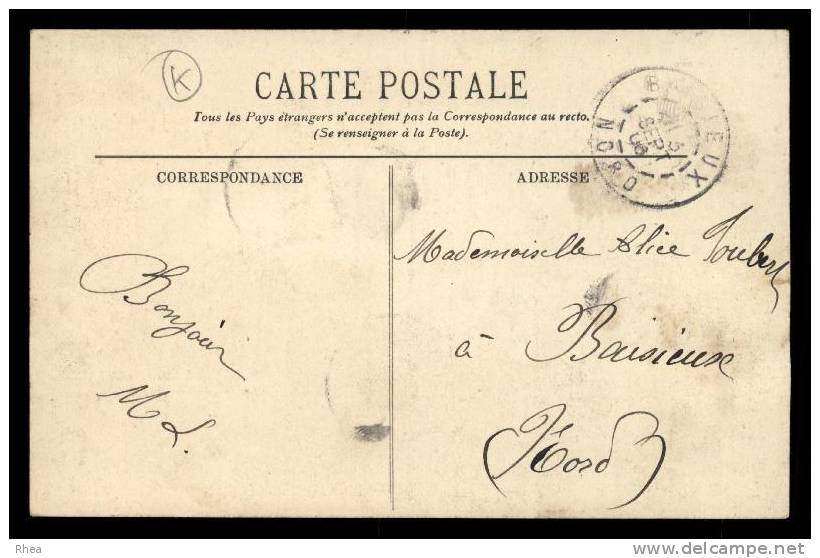 K
CARTE POSTALE
Tous les Pays étrangers n'acceptent pas la Correspondance au recto.
(Se renseigner à la Poste).
BAISIEUX
5
SEPT
06
NORD
CORRESPONDANCE
ADRESSE
Mademoiselle Alice Joubert
à Baisieux
(Nord)
Bonjour
M L.
Rhea
delcampe.net